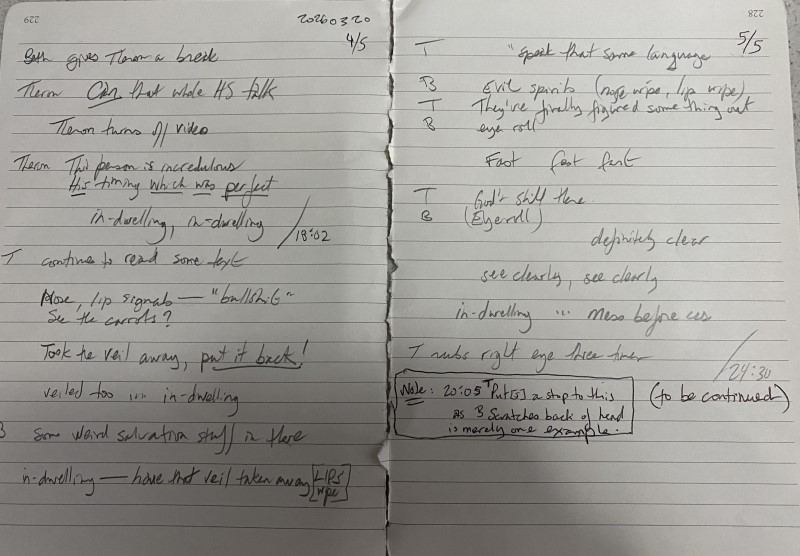 229
20260320
4/5
Beth gives Theron a break
Theron Can that whole HS talk
Theron turns off video
Theron This person is incredulous
His timing which was perfect
in-dwelling, in-dwelling / 18:02
T continues to read some text
Nose, lip signals — "bullshit"
See the carrots?
Took the veil away, put it back!
veiled too ... in-dwelling
B Some weird salvation stuff in there
in-dwelling — have that veil taken away [LIPS wipe]
228
5/5
T "speak that same language
B Evil spirits (nose wipe, lip wipe)
T They've finally figured some thing out
B eye roll
Fast fast fast
T God's still there
B (Eyeroll)
definitely clear
see clearly, see clearly
in-dwelling ... mess before
T rubs right eye three times
/ 24:30
Note: 20:05 T Put[s] a stop to this
as B Scratches back of head
is merely one example.
(to be continued)